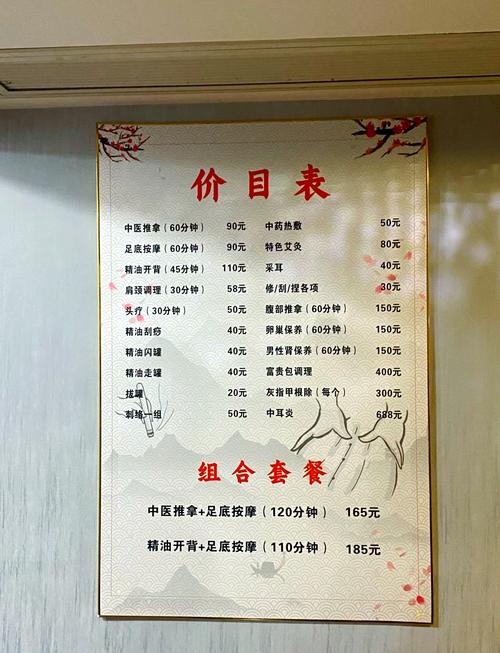 价目表
中医推拿（60分钟） 90元 中药热敷 50元
足底按摩（60分钟） 90元 特色艾灸 80元
精油开背（45分钟） 110元 采耳 40元
肩颈调理（30分钟） 58元 修/刮/捏各项 30元
头疗（30分钟） 50元 腹部推拿（60分钟） 150元
精油刮痧 40元 卵巢保养（60分钟） 150元
精油闪罐 40元 男性肾保养（60分钟） 150元
精油走罐 40元 富贵包调理 400元
拔罐 20元 灰指甲根除（每个） 300元
刺络一组 50元 中耳炎 688元
组合套餐
中医推拿+足底按摩（120分钟） 165元
精油开背+足底按摩（110分钟） 185元